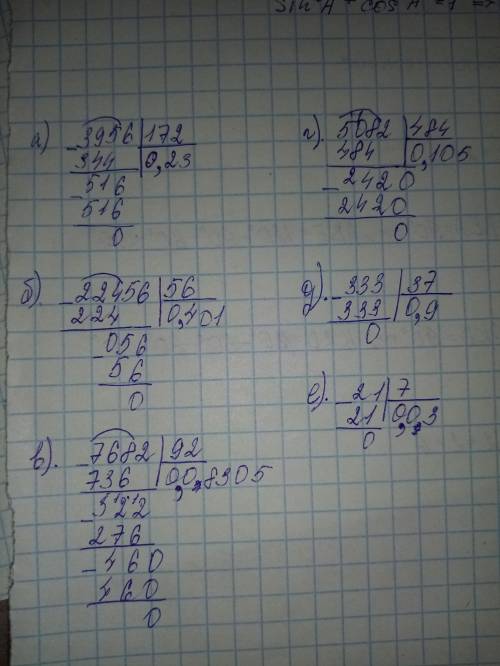 sin²A + cos²A = 1
а) - 3956 | 172
344 | 0,23
- 516
516
0
б). - 22456 | 56
224 | 0,401
- 056
56
0
в). - 7682 | 92
736 | 0,0,8305
- 322
276
- 460
460
0
г). 5082 | 484
484 | 0,105
- 2420
2420
0
д). - 333 | 37
333 | 0,9
0
е). - 21 | 7
21 | 0,0,3
0